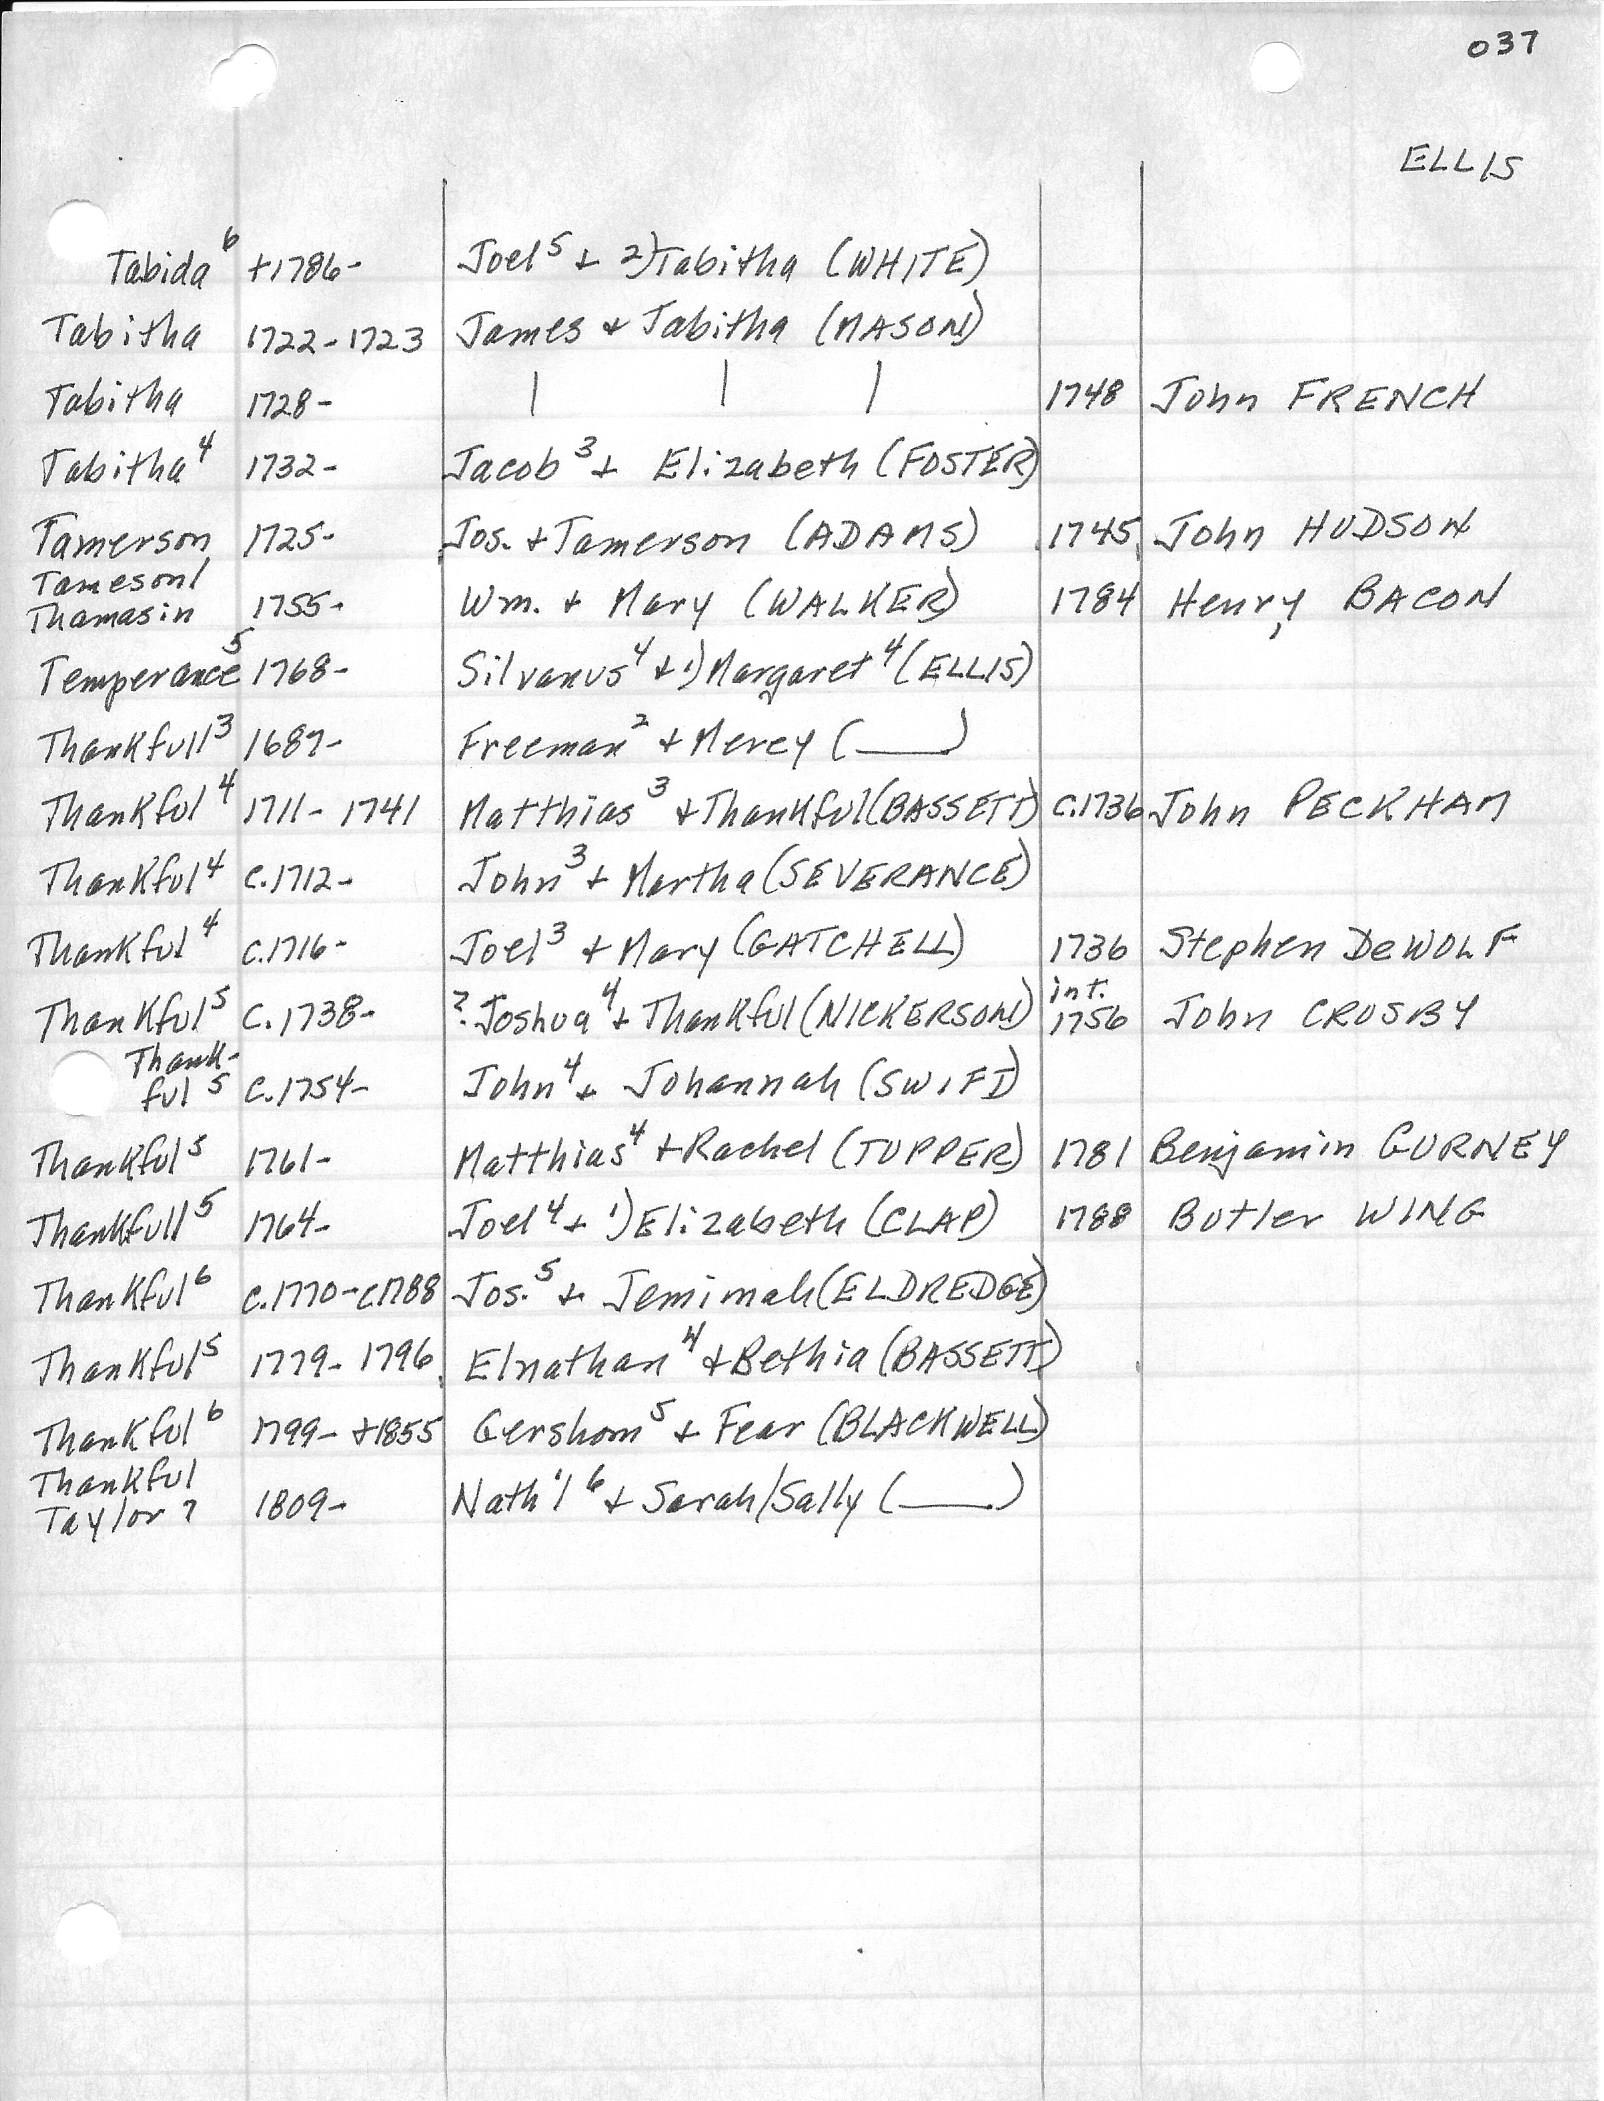 037
ELLIS
Tabida⁶ +1786- Joel⁵ + 2) Tabitha (WHITE)
Tabitha 1722-1723 James + Tabitha (MASON)
Tabitha 1728- | | | 1748 John FRENCH
Tabitha⁴ 1732- Jacob³ + Elizabeth (FOSTER)
Tamerson 1725- Jos. + Tamerson (ADAMS) 1745 John HUDSON
Tameson/
Thamasin 1755- Wm. + Mary (WALKER) 1784 Henry BACON
Temperance⁵ 1768- Silvanus⁴ + 1) Margaret⁴ (ELLIS)
Thankfull³ 1687- Freeman² + Mercy (____)
Thankful⁴ 1711-1741 Matthias³ + Thankful (BASSETT) c.1736 John PECKHAM
Thankful⁴ c.1712- John³ + Martha (SEVERANCE)
Thankful⁴ c.1716- Joel³ + Mary (GATCHELL) 1736 Stephen DeWOLF
Thankful⁵ c.1738- ? Joshua⁴ + Thankful (NICKERSON) int. 1756 John CROSBY
Thank-
ful⁵ c.1754- John⁴ + Johannah (SWIFT)
Thankful⁵ 1761- Matthias⁴ + Rachel (TUPPER) 1781 Benjamin GURNEY
Thankfull⁵ 1764- Joel⁴ + 1) Elizabeth (CLAP) 1788 Butler WING
Thankful⁶ c.1770-c.1788 Jos.⁵ + Jemimah (ELDREDGE)
Thankful⁵ 1779-1796 Elnathan⁴ + Bethia (BASSETT)
Thankful⁶ 1799-+1855 Gershom⁵ + Fear (BLACKWELL)
Thankful
Taylor? 1809- Nath'l⁶ + Sarah/Sally (____)